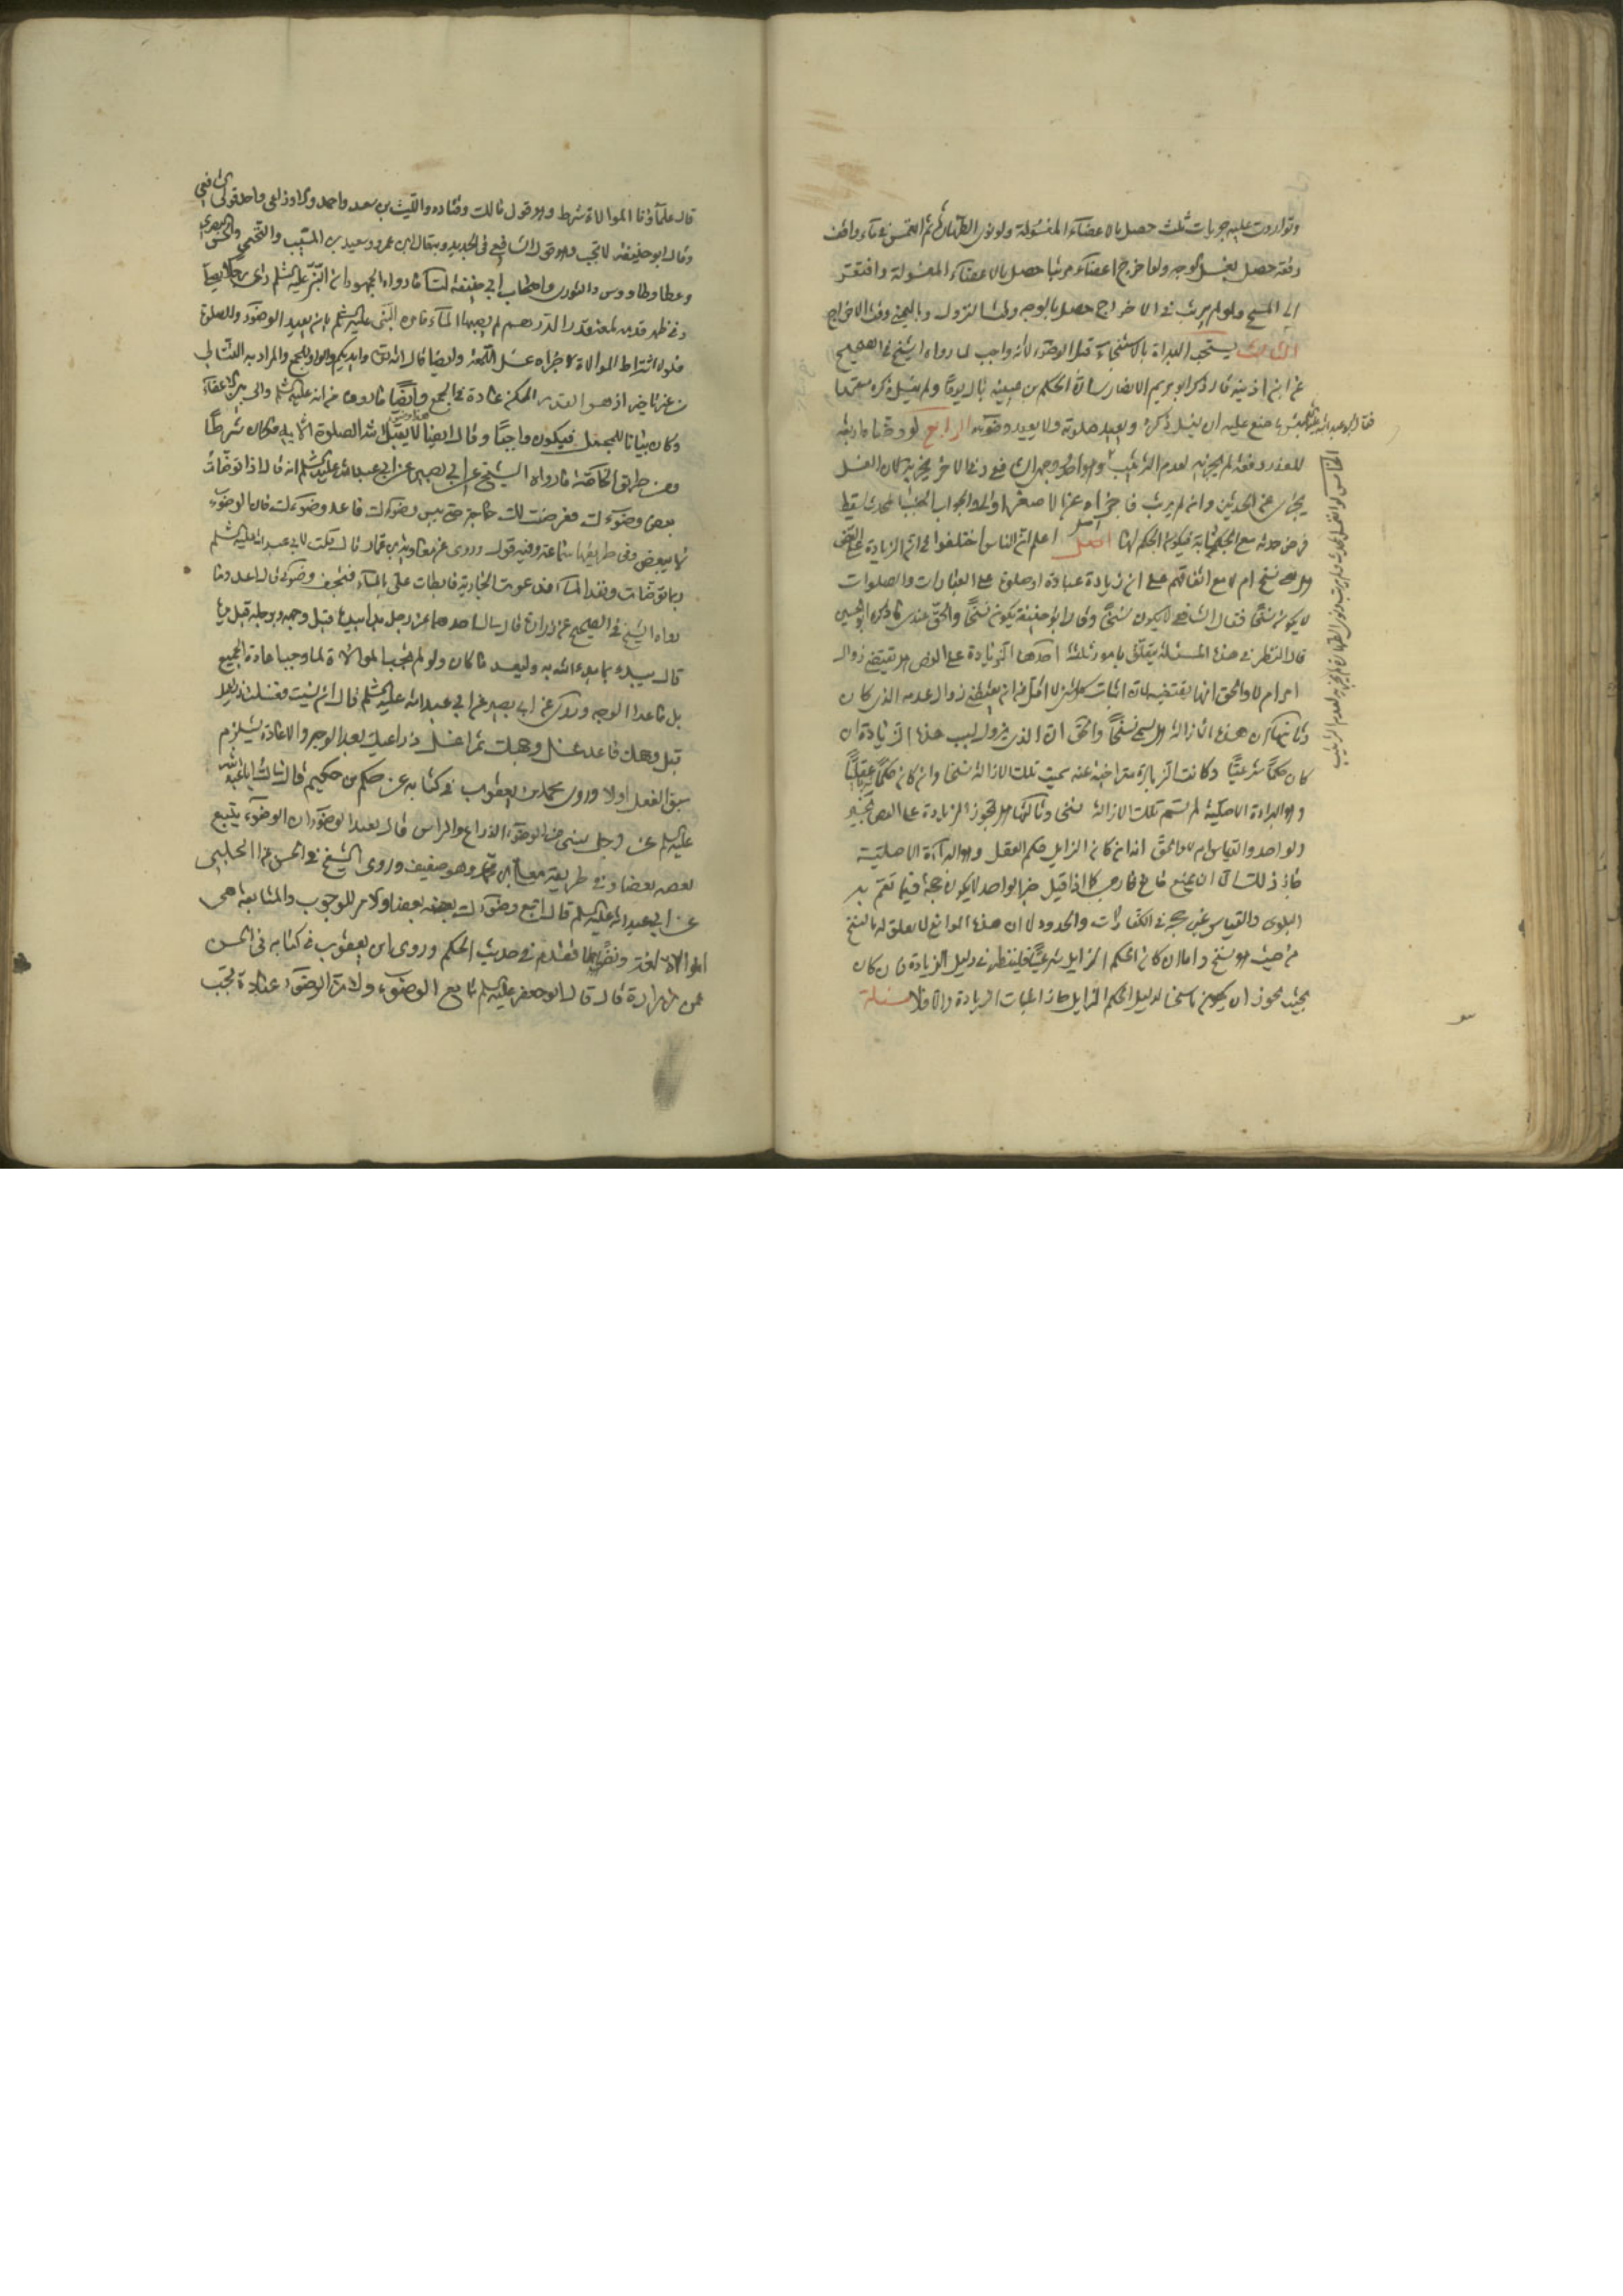 وتواردت عليه جريات ثلث حصل بالاعضآء المغسولة ولو نوى الطهارة ثم انغمس في مآء واقف
دفعة حصل بغسل الوجه ولو اخرج اعضآءه مرتبا حصل بالاعضآء المغسولة وافتقر
الى المسح ولو لم يرتب في الاخراج حصل بالوجه النزول وباليمنى وقت الاخراج
الثالث يستحب البداة بالاستنجآء قبل الوضوء لأنه واجب لما رواه الشيخ في الصحيح
عن ابن اذينه قال ذكر ابو مريم الانصاري ان الحكم بن عيينه بال يوما ولم يغسل ذكره متعمدا
فقال ابو عبد الله عليه السلم بئس ما صنع عليه ان يغسل ذكره ويعيد صلوته ولا يعيد وضوءه الرابع لو وضاه اربعة
للعذر دفعة لم يجزئه لعدم الترتيب وهو احد وجهي الشافعي وفي الاخر يجزيه لان الغسل
يجزي عن الحدثين وان لم يرتب فاجزاه عن الاصغر اولا والجواب الجنب المحدث يسقط
فرض حدثه مع الجنابة فيكون الحكم لها اصل اعلم ان الناس اختلفوا في ان الزيادة على النص
هل هي نسخ ام لا مع اتفاقهم على ان زيادة عبادة او صلوة على العبادات والصلوات
لا يكون نسخا فقال الشافعي لا يكون نسخا وقال ابو حنيفة يكون نسخا والحق عندي ما ذكره ابو الحسين
قال النظر في هذه المسئلة يتعلق بامور ثلثة احدها الزيادة على النص هل تقتضي زوال
امر ام لا والحق انها يقتضيه لان اثبات كل شي لا اقل من ان يقتضي زوال عدمه الذي كان
وثانيها ان هذه الازالة هل تسمى نسخا والحق ان الذي يزول بسبب هذه الزيادة ان
كان حكما شرعيا وكانت الزيادة متراخية عنه سميت تلك الازالة نسخا وان كان حكما عقليا
وهو البراءة الاصلية لم تسم تلك الازالة نسخا وثالثها هل تجوز الزيادة على النص بخبر
الواحد والقياس ام لا والحق انه ان كان الزايل حكم العقل وهو البرآءة الاصلية
جاز ذلك الا ان يمنع مانع خارجي كما اذا قيل خبر الواحد لا يكون حجة فيما تعم به
البلوى والقياس غير حجة في الكفارات والحدود الا ان هذه الموانع لا تعلق له بالنسخ
من حيث هو نسخ واما ان كان الحكم الزايل شرعيا فلينظر في دليل الزيادة فان كان
بحيث يجوز ان يكون ناسخا لدليل الحكم الزايل جاز اثبات الزيادة والا فلا مسئلة
الخامس لو اغتسل المحدث ولم يرتب ونوى الطهارة لم يجزئه لعدم الترتيب
قال علمآؤنا الموالاة شرط وهو قول مالك وقتاده والليث بن سعد واحمد والاوزاعي واحد قولي الشافعي
وقال ابو حنيفة لا تجب وهو قول الشافعي في الجديد وبه قال ابن عمر وسعيد بن المسيب والنخعي والحسن البصري
وعطا وطاووس والثوري واصحاب ابي حنيفة لنا ما رواه الجمهور ان النبي عليه السلم راى رجلا يصلي
وفي ظهر قدمه لمعة قدر الدرهم لم يصبها المآء فامره النبي عليه السلم بان يعيد الوضوء والصلوة
فلولا اشتراط الموالاة لاجزاه غسل اللمعة وايضا قال الله تعالى وايديكم والواو للجمع والمراد به التتالي
من غير تاخير اذ هو القدر الممكن عادة في الجمع وأيضا ما روى من انه عليه السلم والى بين الاعضآء
وكان بيانا للمجمل فيكون واجبا وقال ايضا لا يقبل الله الصلوة الا به فكان شرطا
ومن طريق الخاصة ما رواه الشيخ عن ابي بصير عن ابي عبد الله عليه السلم انه قال اذا توضأت
بعض وضوءك فعرضت لك حاجة حتى يبس وضوءك فاعد وضوءك فان الوضوء
لا يبعض وفي طريقها سماعة وفيه قول وروى عن معاوية بن عمار قال قلت لابي عبد الله عليه السلم
ربما توضات ونفد المآء فدعوت الجارية فابطات علي بالمآء فيجف وضوئي قال اعد وما
رواه الشيخ في الصحيح عن زرارة قال سال احدهما عن رجل بدا بيده قبل وجهه وبرجليه قبل يديه
قال يبدء بما بدء الله به وليعد ما كان ولو لم تجب الموالاة لما وجب اعادة الجميع
بل ماعدا الوجه وروى عن ابي بصير عن ابي عبد الله عليه السلم قال ان نسيت فغسلت ذراعيك
قبل وجهك فاعد غسل وجهك ثم اغسل ذراعيك بعد الوجه والاعادة يستلزم
سبق الفعل اولا وروى محمد بن يعقوب في كتابه عن حكم بن حكيم قال سالت ابا عبد الله
عليه السلم عن رجل نسي من الوضوء الذراع والراس قال يعيد الوضوء ان الوضوء يتبع
بعضه بعضا وفي طريقه معلى بن محمد وهو ضعيف وروى الشيخ في الحسن عن الحلبي
عن ابي عبد الله عليه السلم قال اتبع وضوءك بعضه بعضا والامر للوجوب والمتابعة هي
الموالاة لغة ونضيا ما تقدم في حديث الحكم وروى ابن يعقوب في كتابه في الحسن
عن زرارة قال قال ابو جعفر عليه السلم تابع الوضوء ولان الوضوء عبادة تجب